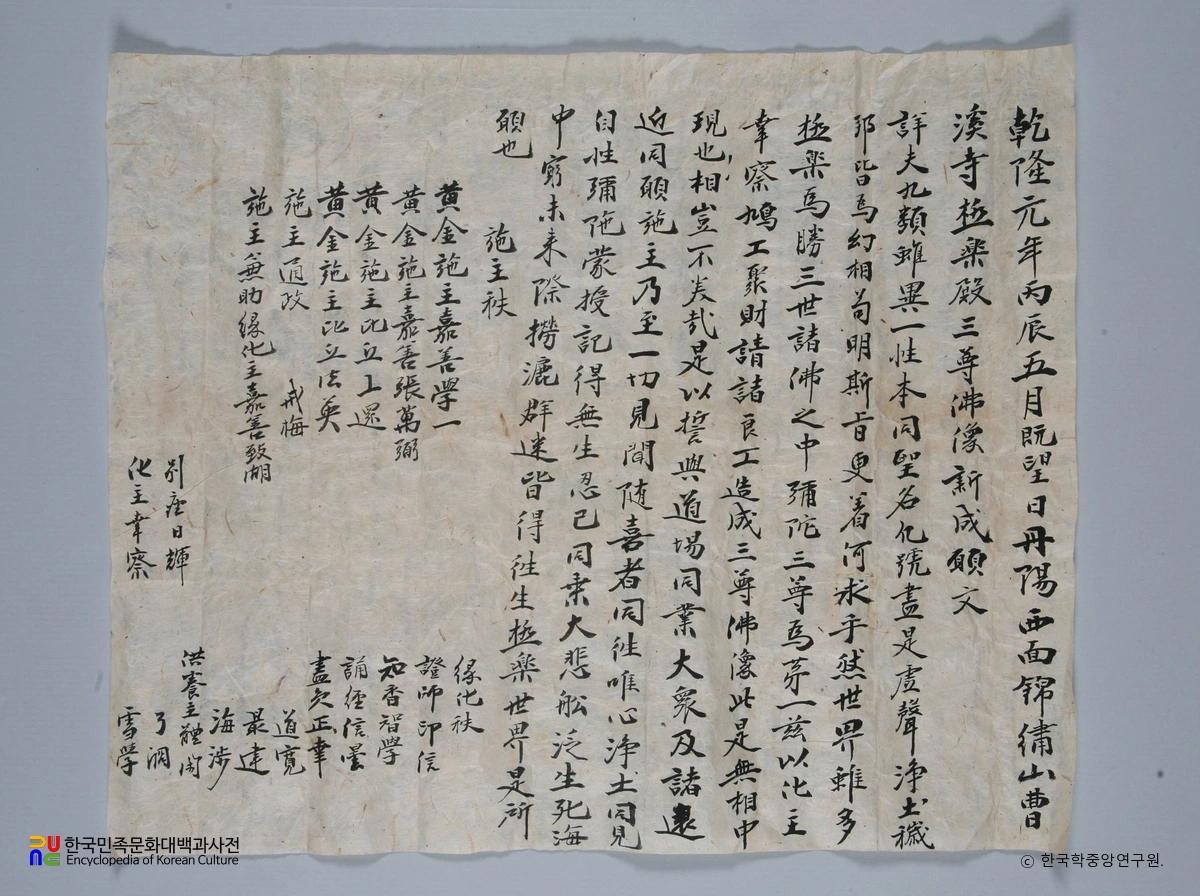 乾隆元年丙辰五月既望日丹陽西面錦繡山曹
溪寺極樂殿三尊佛像新成願文
詳夫九類雖異一性本同聖名凡號盡是虛聲淨土穢
邦皆爲幻相苟明斯旨更着何求乎然世界雖多
極樂爲勝三世諸佛之中彌陀三尊爲第一茲以化主
幸察鳩工聚財請諸良工造成三尊佛像此是無相中
現也相豈不美哉是以誓與道場同業大衆及諸遠
近同願施主乃至一切見聞随喜者同徃唯心淨土同見
自性彌陁蒙授記得無生忍已同乘大悲舩泛生死海
中窮未來際撈漉群迷皆得徃生極樂世界是所
願也
施主秩
黃金施主嘉善學一
黃金施主嘉善張萬弼
黃金施主比丘上還
黃金施主比丘法英
施主通政 戒梅
施主兼助緣化主嘉善致湖
緣化秩
證師印信
知香智學
誦經信曇
畫員正幸
道寬
最建
海涉
供養主體
了洞
雪学
別座日輝
化主幸察
한국민족문화대백과사전
Encyclopedia of Korean Culture
ⓒ 한국학중앙연구원.